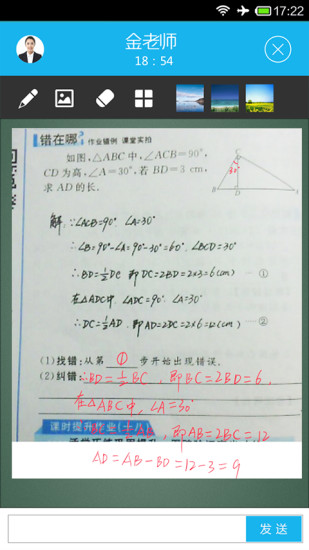 17:22
金老师
18：54
错在哪？ 作业错例 课堂实拍
如图,△ABC中,∠ACB=90°,
CD为高,∠A=30°,若BD=3 cm,
求AD的长.
C
B
D
A
解:∵∠ACB=90°,∠A=30°
∴∠B=90°-∠A=90°-30°=60°,∠BCD=30°
∴BD=½DC 即DC=2BD=2×3=6(cm) —①
在△ADC中, ∠ADC=90°, ∠A=30°
∴DC=½AD, 即AD=2DC=2×6=12(cm) —②
(1)找错:从第 ① 步开始出现错误.
(2)纠错:∴BD=½BC, 即BC=2BD=6,
在△ABC中, ∠A=30°
课时提升作业(十八)
, 即AB=2BC=12
AD=AB-BD=12-3=9
发送